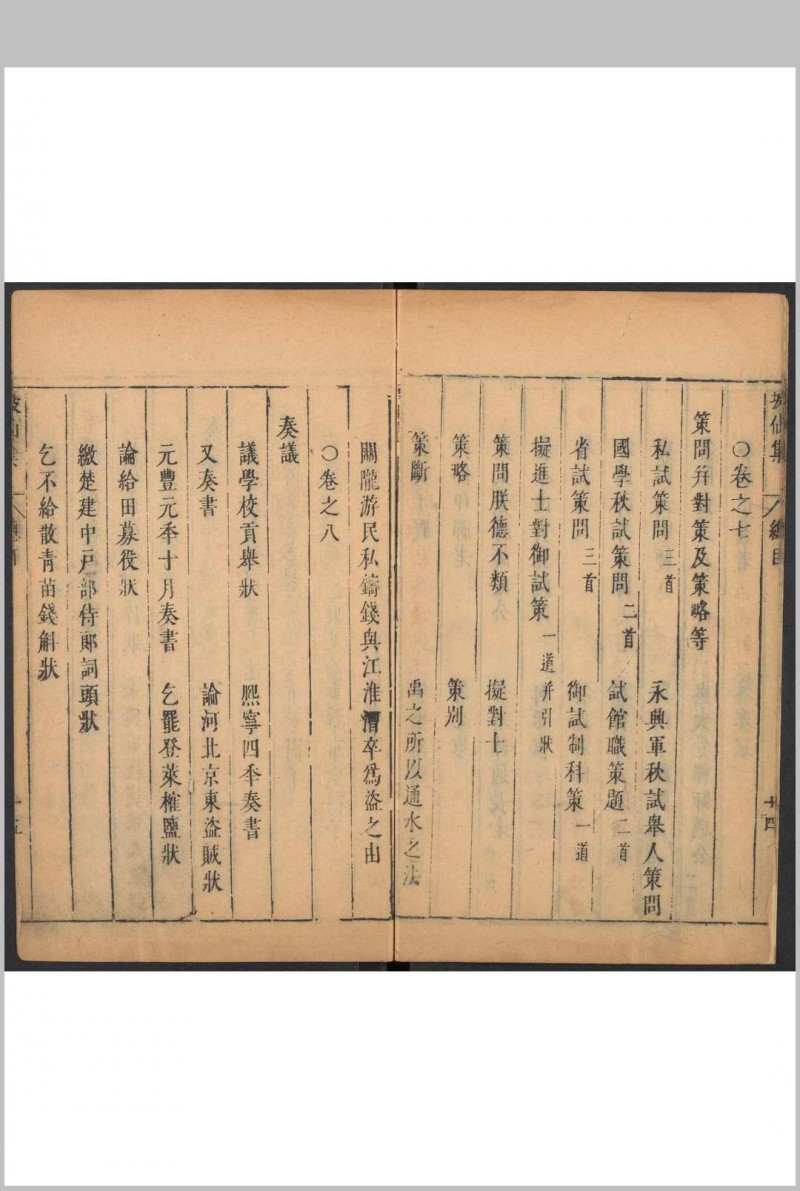 坡仙集 總目 十四
○卷之七
策問幷對策及策略等
私試策問 三首 永興軍秋試舉人策問
國學秋試策問 二首 試館職策題 二首
省試策問 三首 御試制科策 一道
擬進士對御試策 一道并引狀
策問朕德不類 擬對士
策略 策別
策斷 禹之所以通水之法
關隴游民私鑄錢與江淮漕卒爲盜之由
○卷之八
奏議
議學校貢舉狀 熙寧四季奏書
又奏書 論河北京東盜賊狀
元豐元季十月奏書 乞罷登萊榷鹽狀
論給田募役狀
繳楚建中戶部侍郞詞頭狀
乞不給散青苗錢斛狀
坡仙集 總目 十五